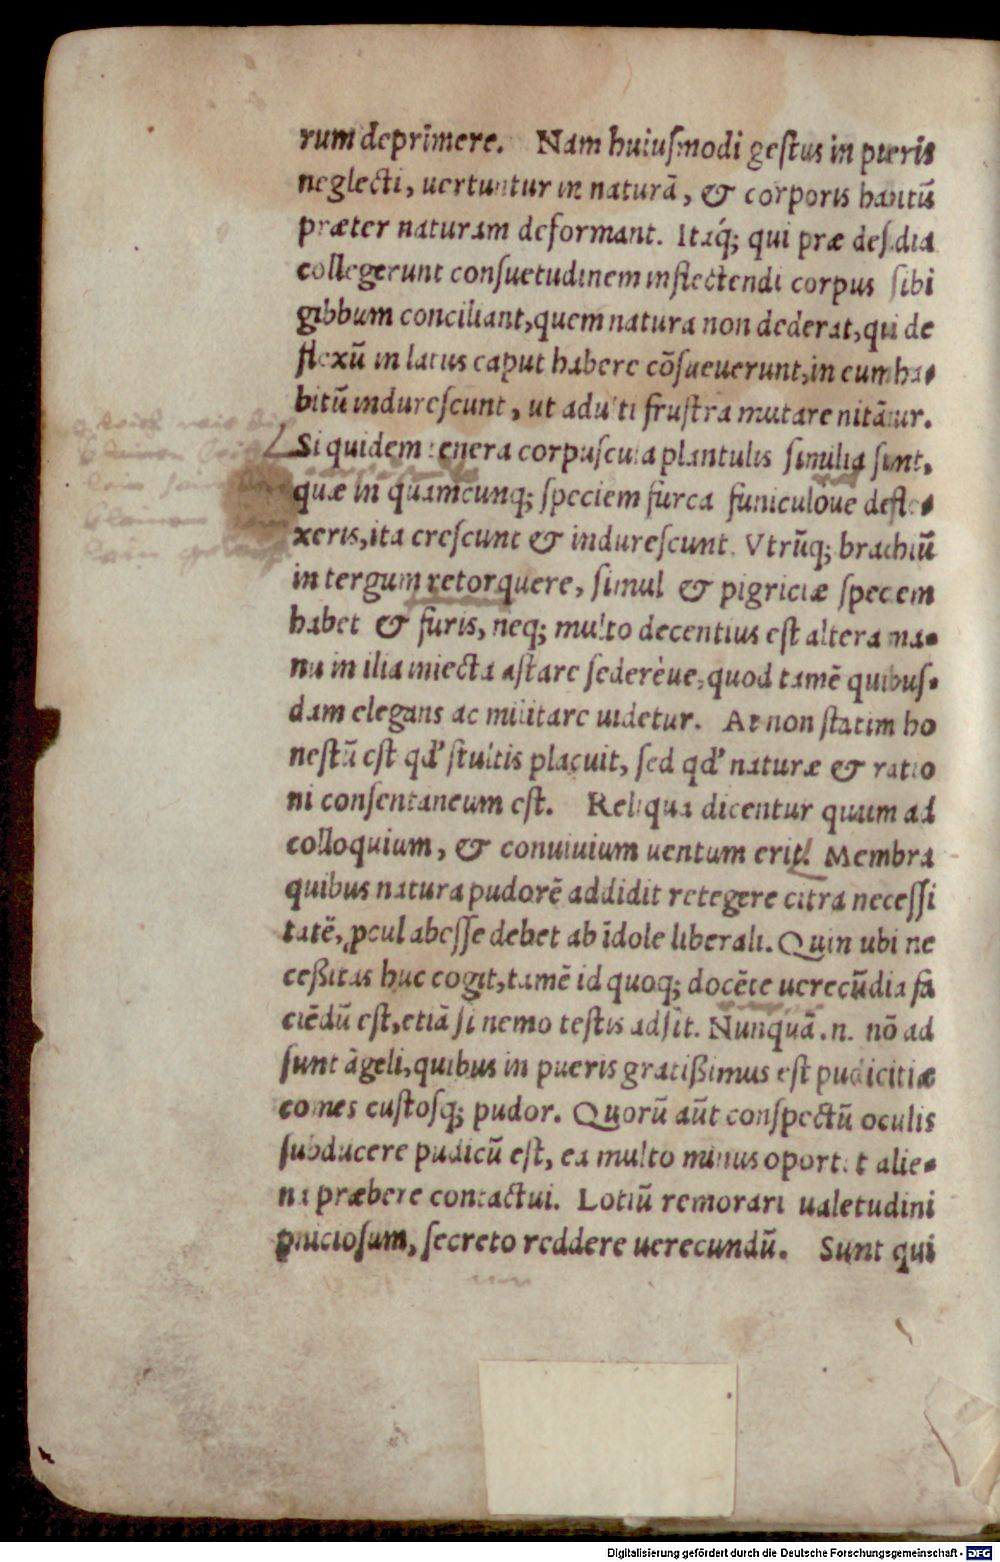 rum deprimere. Nam huiuſmodi geſtus in pueris
neglecti, uertuntur in naturã, & corporis habitũ
præter naturam deformant. Itaq́; qui præ deſidia
collegerunt conſuetudinem inflectendi corpus ſibi
gibbum conciliant, quem natura non dederat, qui de
flexũ in latus caput habere cõſueuerunt, in eum ha-
bitũ indureſcunt, ut adulti fruſtra mutare nitãtur.
Si quidem tenera corpuſcula plantulis ſimilia ſunt,
quæ in quamcunq; ſpeciem furca funiculoue defle-
xeris, ita creſcunt & indureſcunt. Vtrũq; brachiũ
in tergum retorquere, ſimul & pigriciæ ſpeciem
habet & furis, neq; multo decentius eſt altera ma-
nu in ilia iniecta aſtare ſederéue, quod tamẽ quibuſ-
dam elegans ac militare uidetur. At non ſtatim ho
neſtũ eſt qd' ſtultis placuit, ſed qd' naturæ & ratio
ni conſentaneum eſt. Reliqua dicentur quum ad
colloquium, & conuiuium uentum erit. Membra
quibus natura pudorẽ addidit retegere citra neceſſi
tatẽ, ꝓcul abeſſe debet ab ĩdole liberali. Quin ubi ne
ceßitas huc cogit, tamẽ id quoq; docẽte uerecũdia fa
ciẽdũ eſt, etiã ſi nemo teſtis adſit. Nunquã .n. nõ ad
ſunt ãgeli, quibus in pueris gratißimus eſt pudicitiæ
comes cuſtoſq; pudor. Quorũ aũt conſpectũ oculis
ſubducere pudicũ eſt, ea multo minus oportet alie-
na præbere contactui. Lotiũ remorari ualetudini
ꝑniciosum, ſecreto reddere uerecundũ. Sunt qui
Digitalisierung gefördert durch die Deutsche Forschungsgemeinschaft - DFG